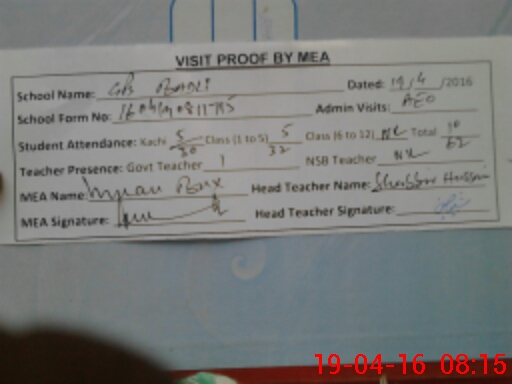 VISIT PROOF BY MEA
School Name: Dated: 19/4/2016
School Form No: Admin Visits: AEO
Student Attendance: Kachi 5/30 Class (1 to 5) 5/32 Class (6 to 12) Total 10/62
Teacher Presence: Govt Teacher 1 NSB Teacher
MEA Name: Head Teacher Name:
MEA Signature: Head Teacher Signature:
19-04-16 08:15